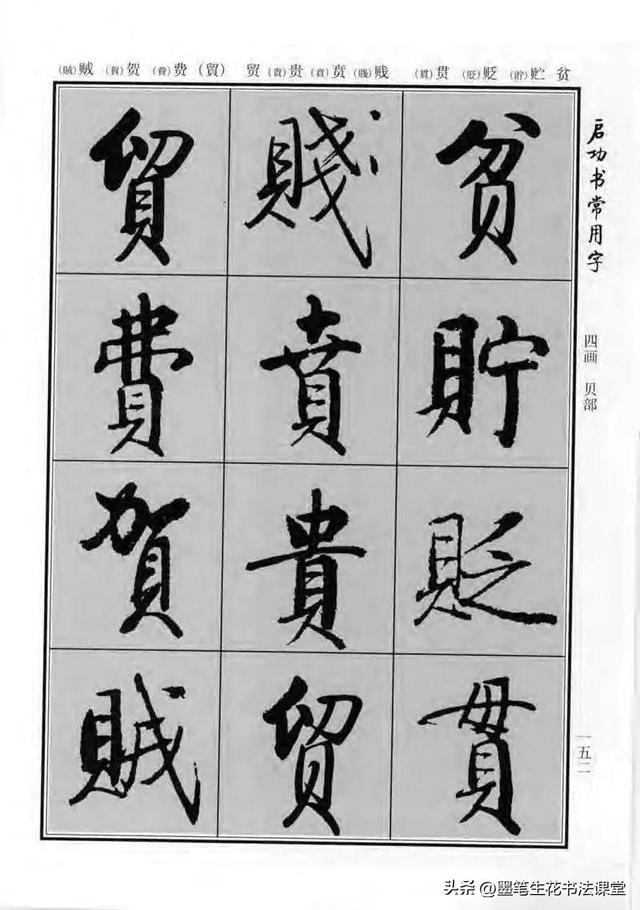 (賊)贼 (賀)贺 (費)费 (貿) 贸 (貴)贵 (賁)贲 (賤)贱 (貫)贯 (貶)贬 (貯)贮 贫
启功书常用字
四画 贝部
貧
貯
貶
貫
賤
賁
貴
貿
貿
費
賀
賊
一五二
头条 @墨笔生花书法课堂